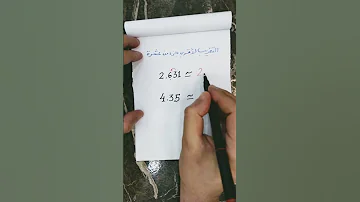 التقريب لأقرب جزء من عشرة
2.631 ≃ 2
4.35 ≃